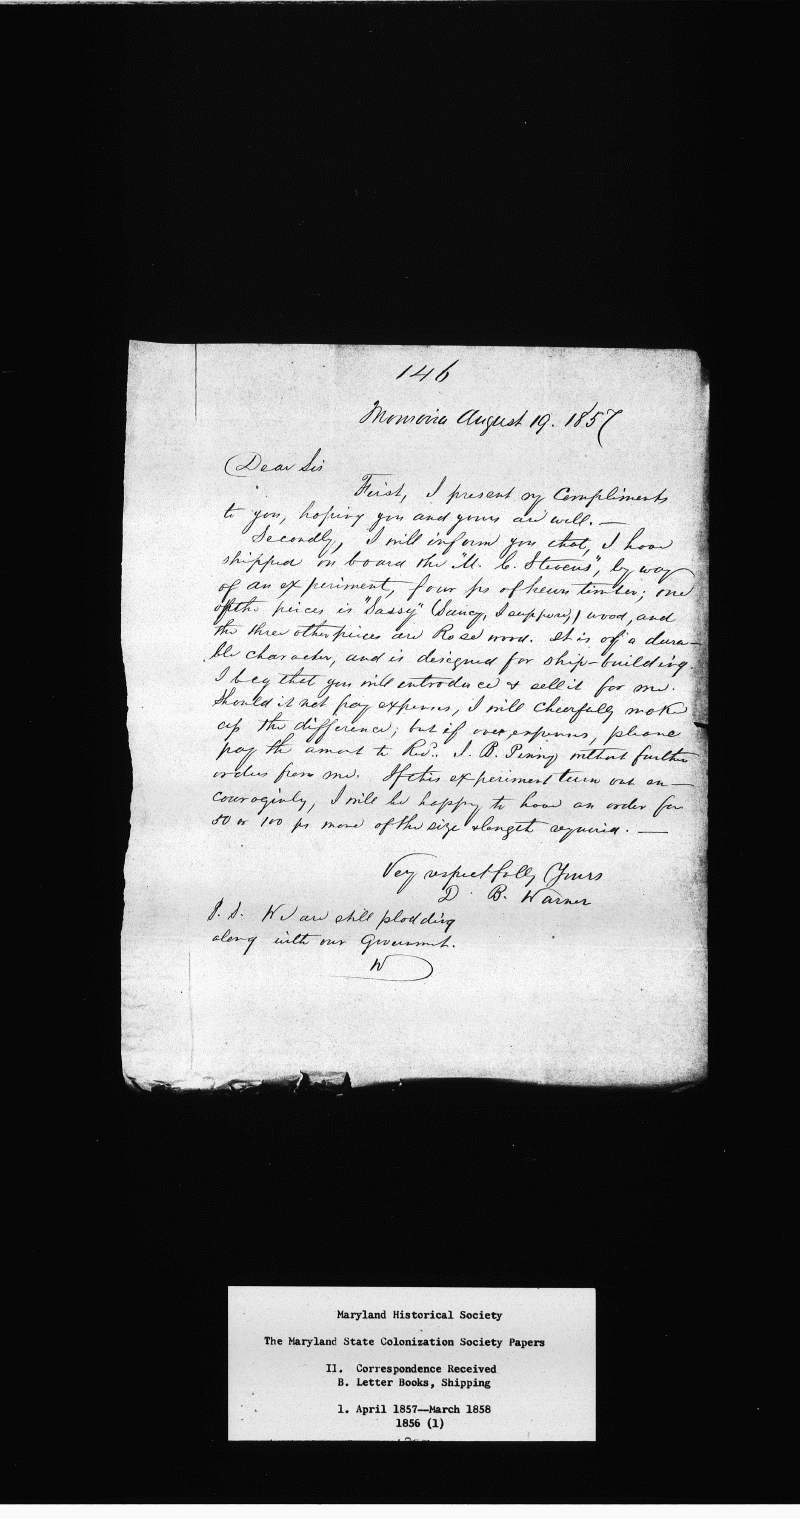 146
Monrovia August 19. 1857
Dear Sir
First, I present my Compliments
to you, hoping you and yours are well. —
Secondly, I will inform you that, I have
shipped on board the "M. C. Stevens", by way
of an experiment, four ps of hewn timber; one
of the peices is "Sassy" (Saucy, I suppose,) wood, and
the three other peices are Rose wood. It is of a dura-
ble character, and is designed for ship-building.
I beg that you will introduce & sell it for me.
Should it not pay expenses, I will cheerfully make
up the difference; but if over expenses, please
pay the amount to Revd. J. B. Pinny without further
orders from me. If this experiment turn out en-
couragingly, I will be happy to have an order for
50 or 100 ps more of the size & length required. —
Very respectfully Yours
D. B. Warner
P. S. We are still plodding
along with our Government.
W
Maryland Historical Society
The Maryland State Colonization Society Papers
II. Correspondence Received
B. Letter Books, Shipping
1. April 1857--March 1858
1856 (1)